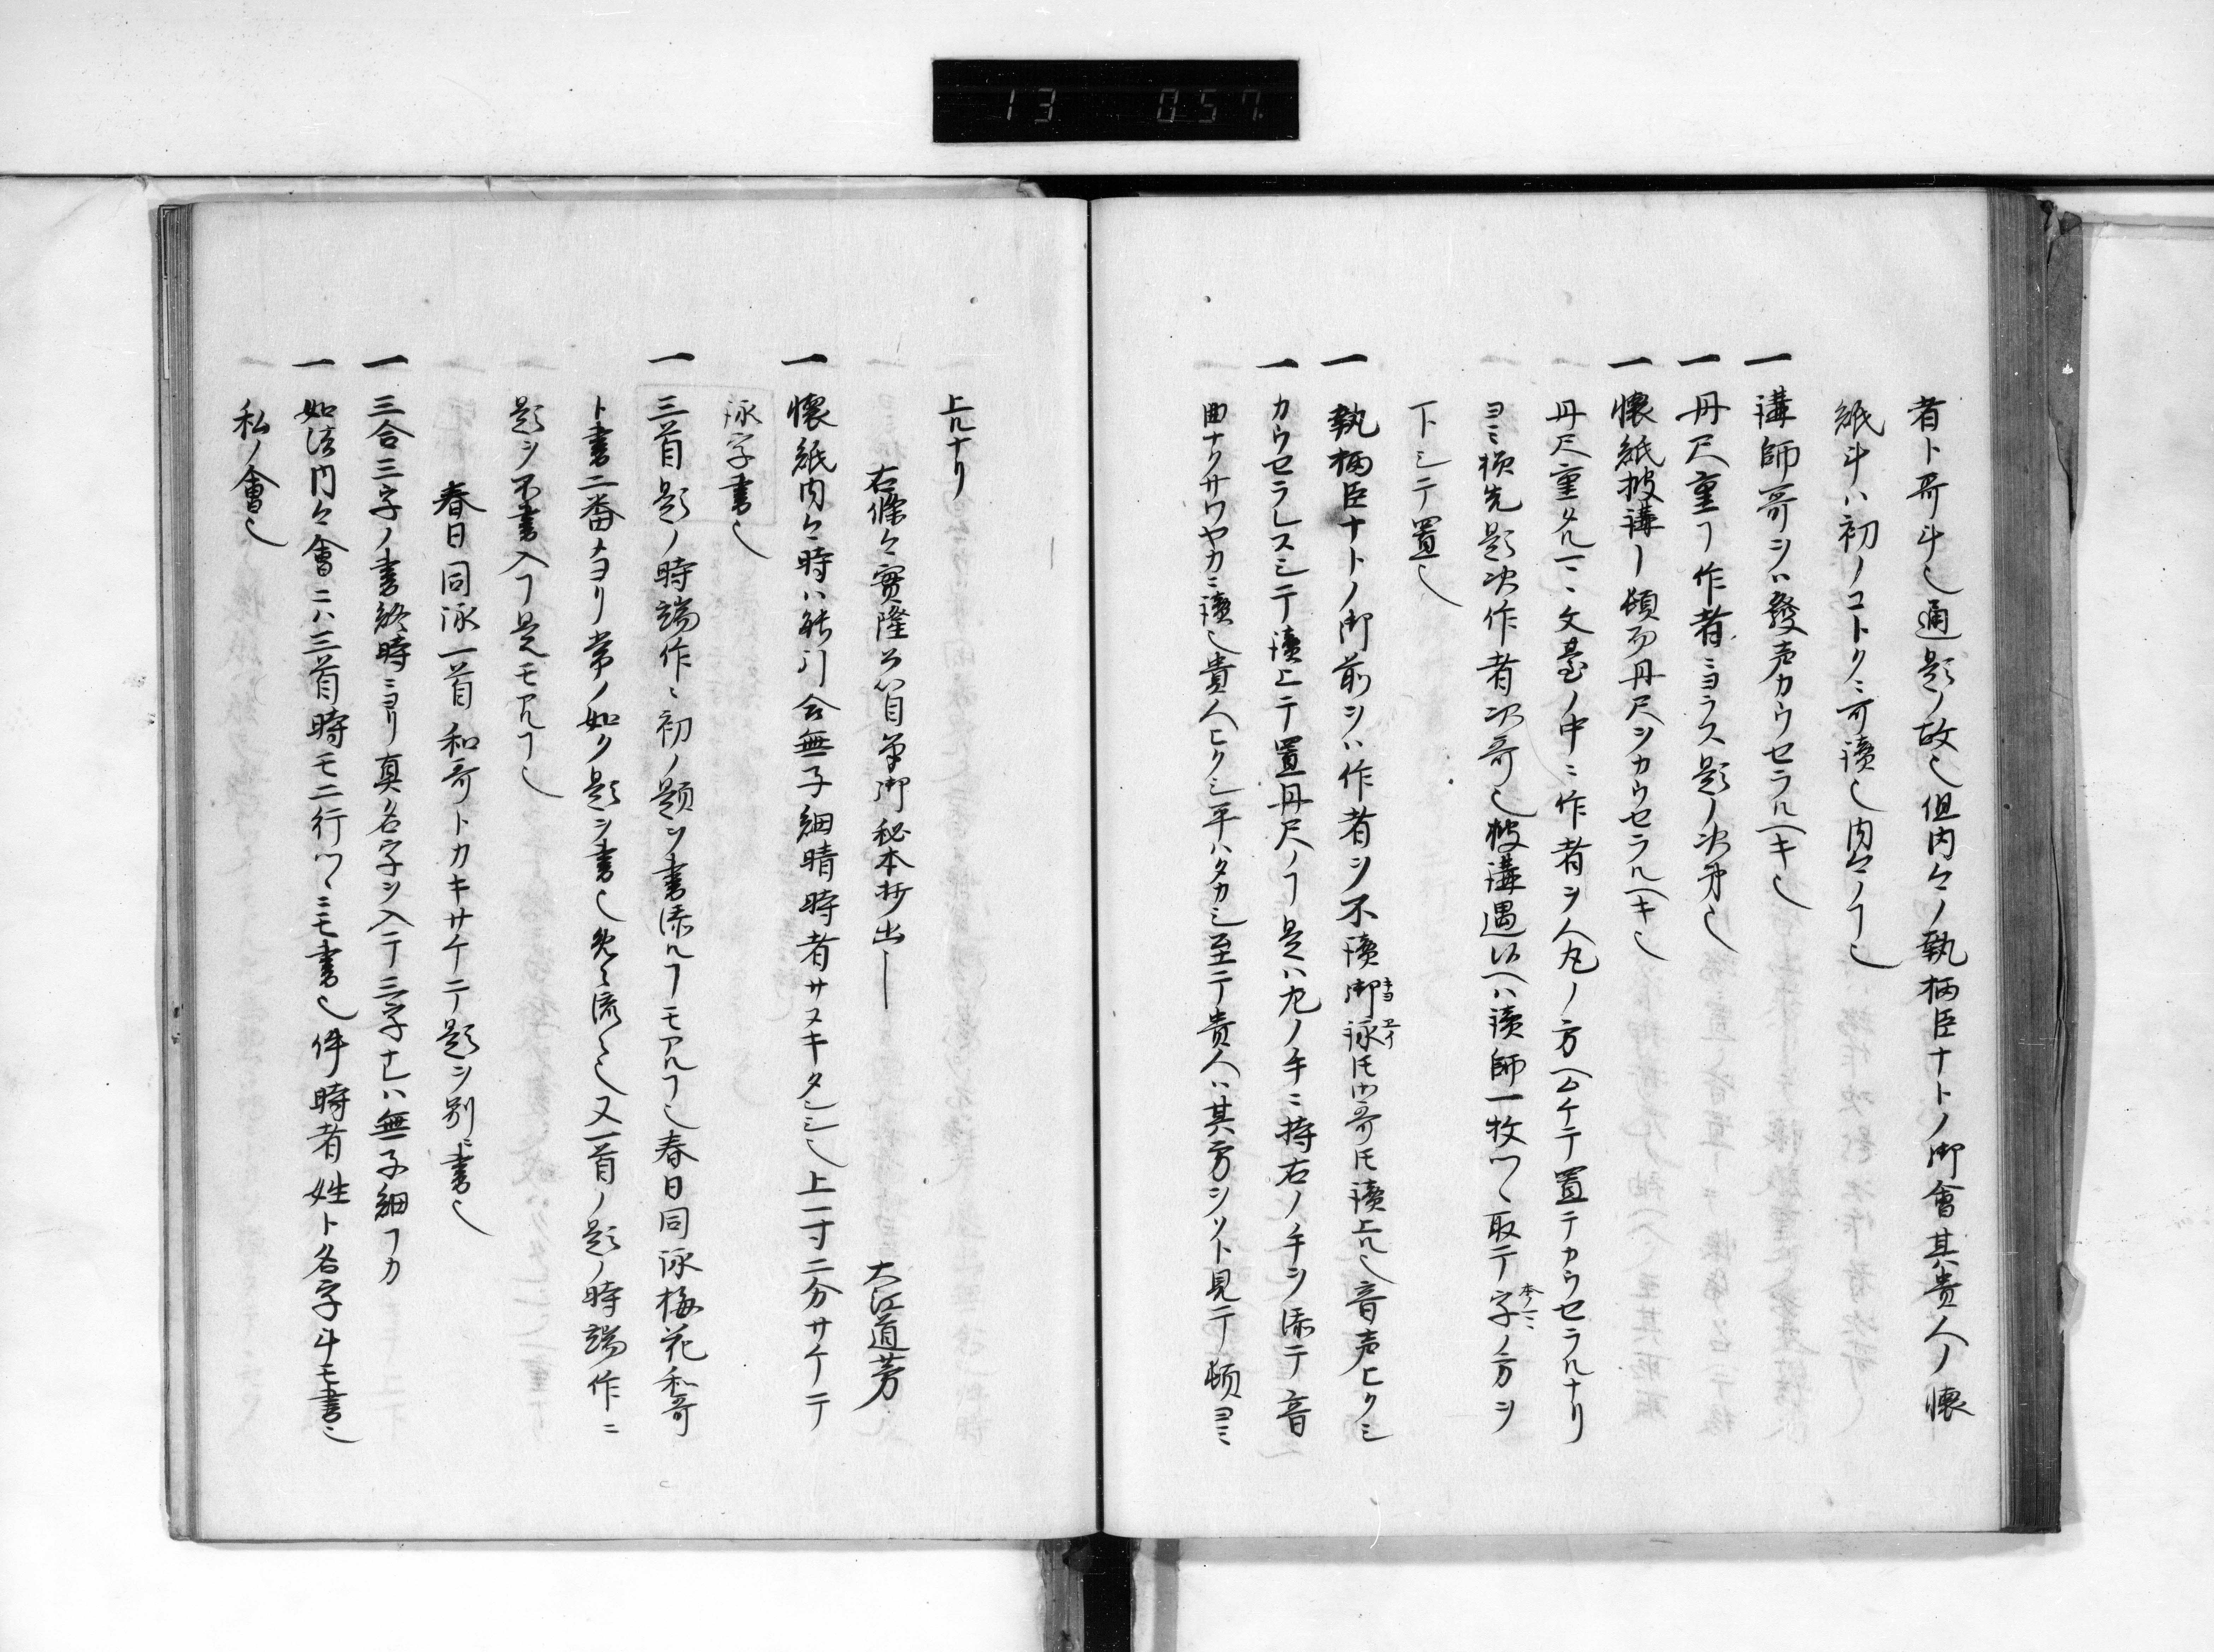 13 057
者ト哥斗也通題ノ故也但内々ノ執柄臣ナトノ御會其貴人ノ懐
紙斗ハ初ノコトクニ可讀也内々ノヿ也
一 講師哥ヲハ發声カウセラルヘキ也
一 丹尺重ヿ作者ニヨラス題ノ次第也
一 懐紙披講ノ頓而丹尺ヲカウセラルヘキ也
丹尺重タルヿニ文臺ノ中ニ作者ヲ人丸ノ方ヘムケテ置テカウセラルナリ
ヨミ様先題次作者次哥也披講過候ヘハ讀師一枚ツヽ取テ字ノ方ヲ
本ノマヽ
下ニシテ置也
一 執柄臣ナトノ御前ヲハ作者ヲ不讀御詠トモ御哥トモ讀上ル也音声ヒクシ
一 カウセラレスシテ讀上テ置丹尺ノヿ是ハ左ノ手ニ持右ノ手ヲ添テ音
曲ナクサワヤカニ讀也貴人ヒクシ平ハタカシ至テ貴人ハ其方ヲソト見テ頓ヨミ
上ルナリ
右條々實隆公以自筆御秘本抄出ー
大江道芳
一 懐紙内々時ハ 引合無子細晴時者サヌキタンシ也上一寸二分サケテ
詠字書也
一 三首題ノ時端作ニ初ノ題ヲ書添ルヿモアルヿ也春日同詠梅花和哥
ト書二番メヨリ常ノ如ク題ヲ書也 流々也又一首ノ題ノ時端作ニ
題ヲ不書入ヿ是モアルヿ也
春日同詠一首和哥トカキサケテ題ヲ別ニ書也
一 三合三字ノ書終時ニヨリ真名字ヲ入テ三字ナレハ無子細ヿカ
一 如法内々會ニハ三首時モ二行ツヽニモ書也件時者姓ト名字斗モ書也
私ノ會也